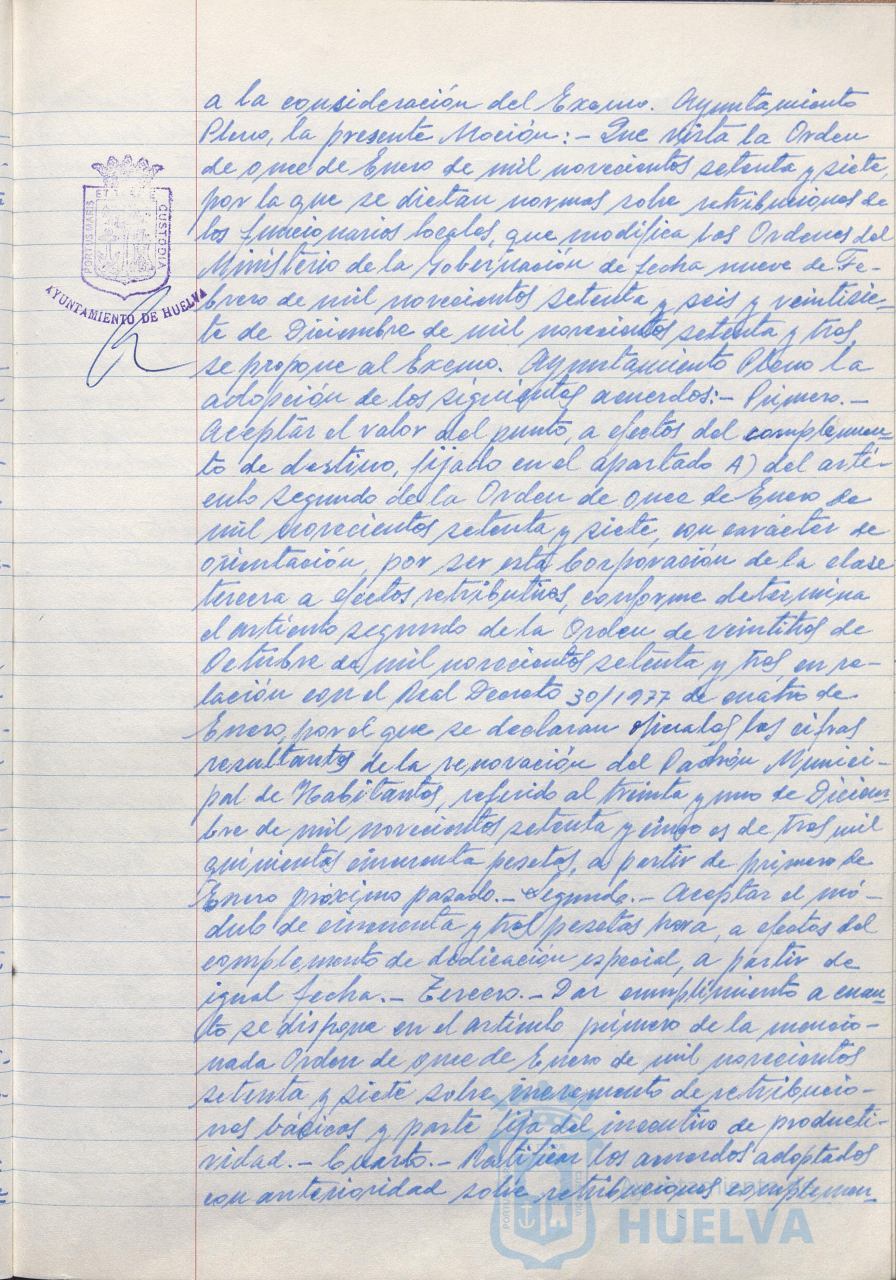 a la consideración del Excmo. Ayuntamiento
Pleno, la presente Moción:- Que vista la Orden
de once de Enero de mil novecientos setenta y siete,
por la que se dictan normas sobre retribuciones de
los funcionarios locales, que modifica las Ordenes del
Ministerio de la Gobernación de fecha nueve de Fe-
brero de mil novecientos setenta y seis y veintisie-
te de Diciembre de mil novecientos setenta y tres,
se propone al Excmo. Ayuntamiento Pleno la
adopción de los siguientes acuerdos:- Primero.-
Aceptar el valor del punto, a efectos del complemen-
to de destino, fijado en el apartado A) del artí-
culo segundo de la Orden de once de Enero de
mil novecientos setenta y siete, con carácter de
orientación, por ser esta Corporación de la clase
tercera a efectos retributivos, conforme determina
el artículo segundo de la Orden de veintitrés de
Octubre de mil novecientos setenta y tres en re-
lación con el Real Decreto 30/1977 de cuatro de
Enero, por el que se declaran oficiales las cifras
resultantes de la renovación del Padrón Munici-
pal de Habitantes, referido al treinta y uno de Diciem-
bre de mil novecientos setenta y cinco es de tres mil
quinientas cincuenta pesetas, a partir de primero de
Enero próximo pasado.- Segundo.- Aceptar el mó-
dulo de cincuenta y tres pesetas hora, a efectos del
complemento de dedicación especial, a partir de
igual fecha.- Tercero.- Dar cumplimiento a cuan-
to se dispone en el artículo primero de la mencio-
nada Orden de once de Enero de mil novecientos
setenta y siete sobre incremento de retribucio-
nes básicas y parte fija del incentivo de producti-
vidad.- Cuarto.- Ratificar los acuerdos adoptados
con anterioridad sobre retribuciones complemen-
PORTUS MARIS
CUSTODIA
AYUNTAMIENTO DE HUELVA
Ayuntamiento de
HUELVA